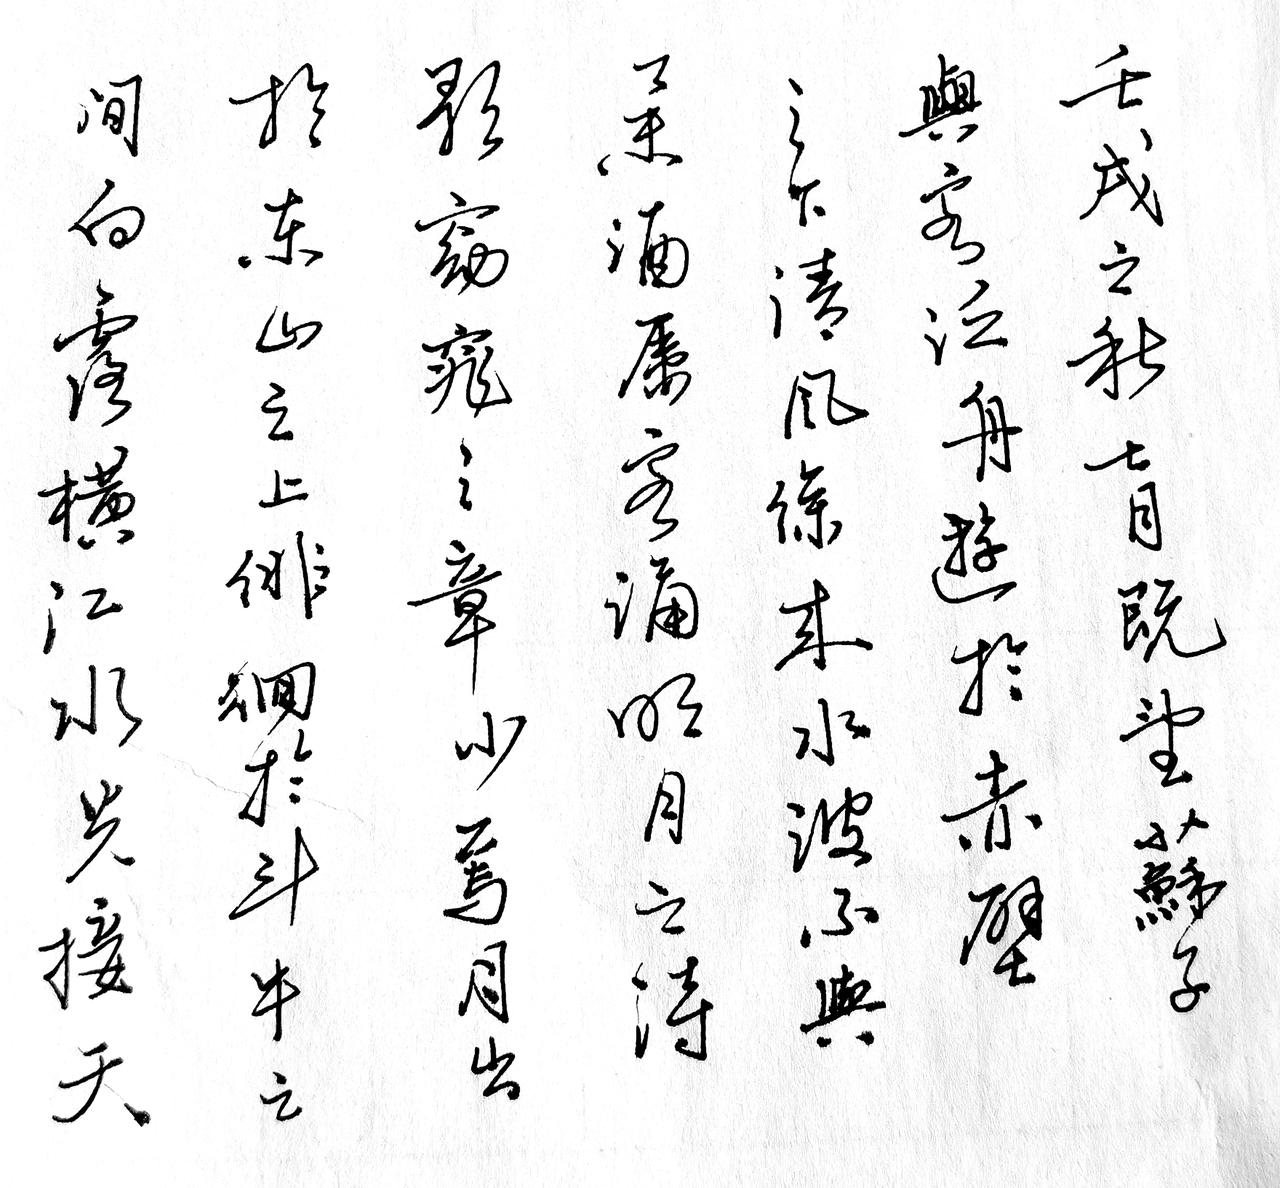 壬戌之秋七月既望蘇子
與客泛舟遊於赤壁
之下清風徐來水波不興
舉酒屬客誦明月之詩
歌窈窕之章少焉月出
於东山之上徘徊於斗牛之
间白露横江水光接天